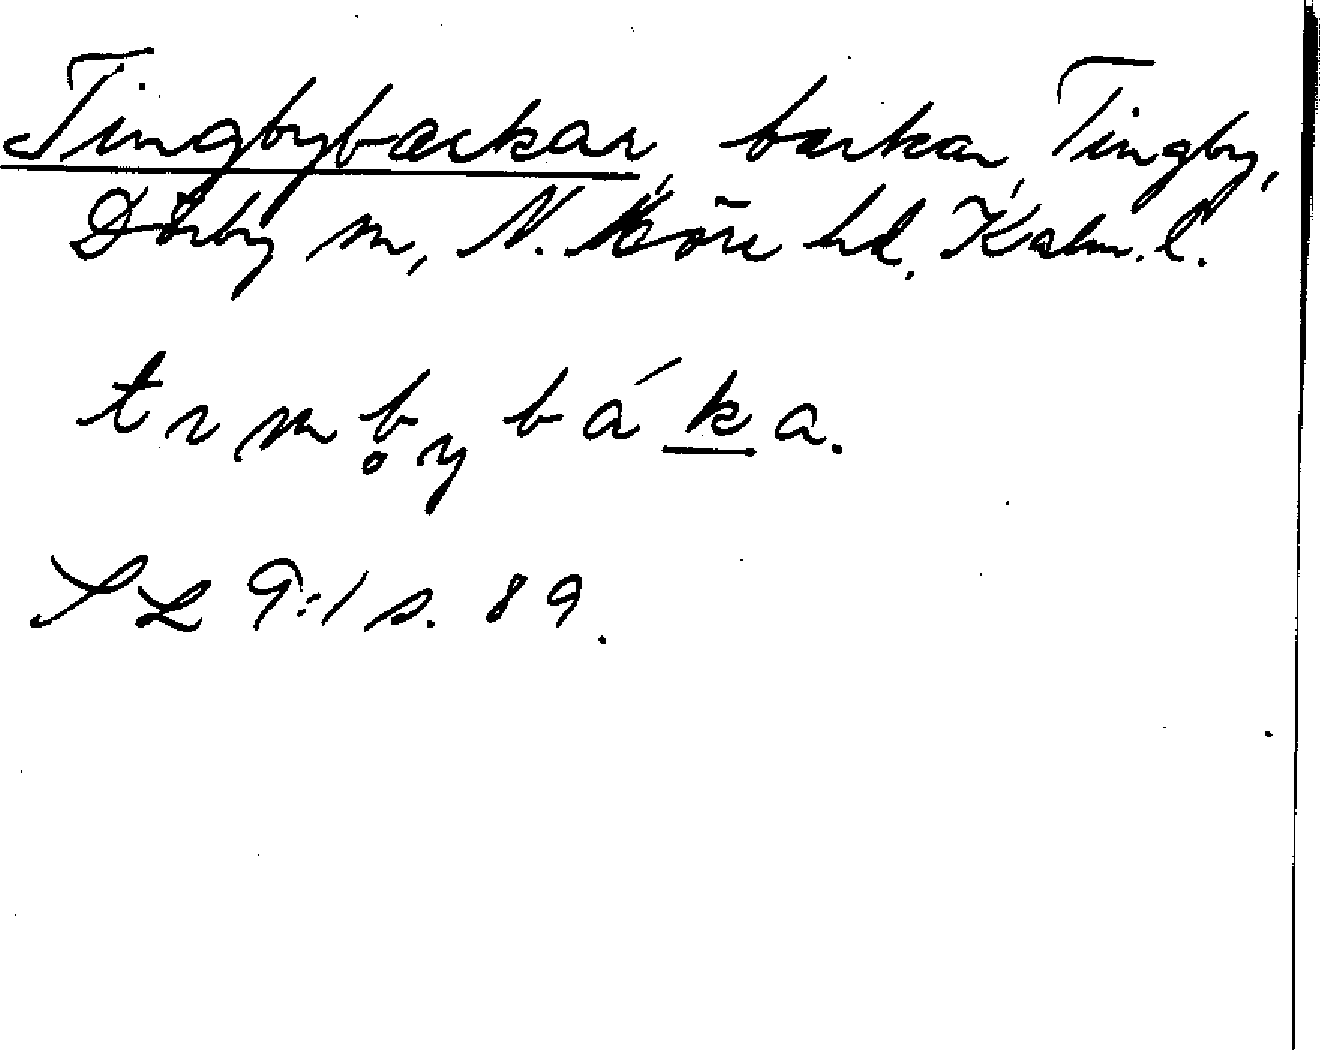 Tingbybackar, backar, Tingby,
Dörby sn, N. Möre hd. Kalm. l.
SL 9:1 s. 89.